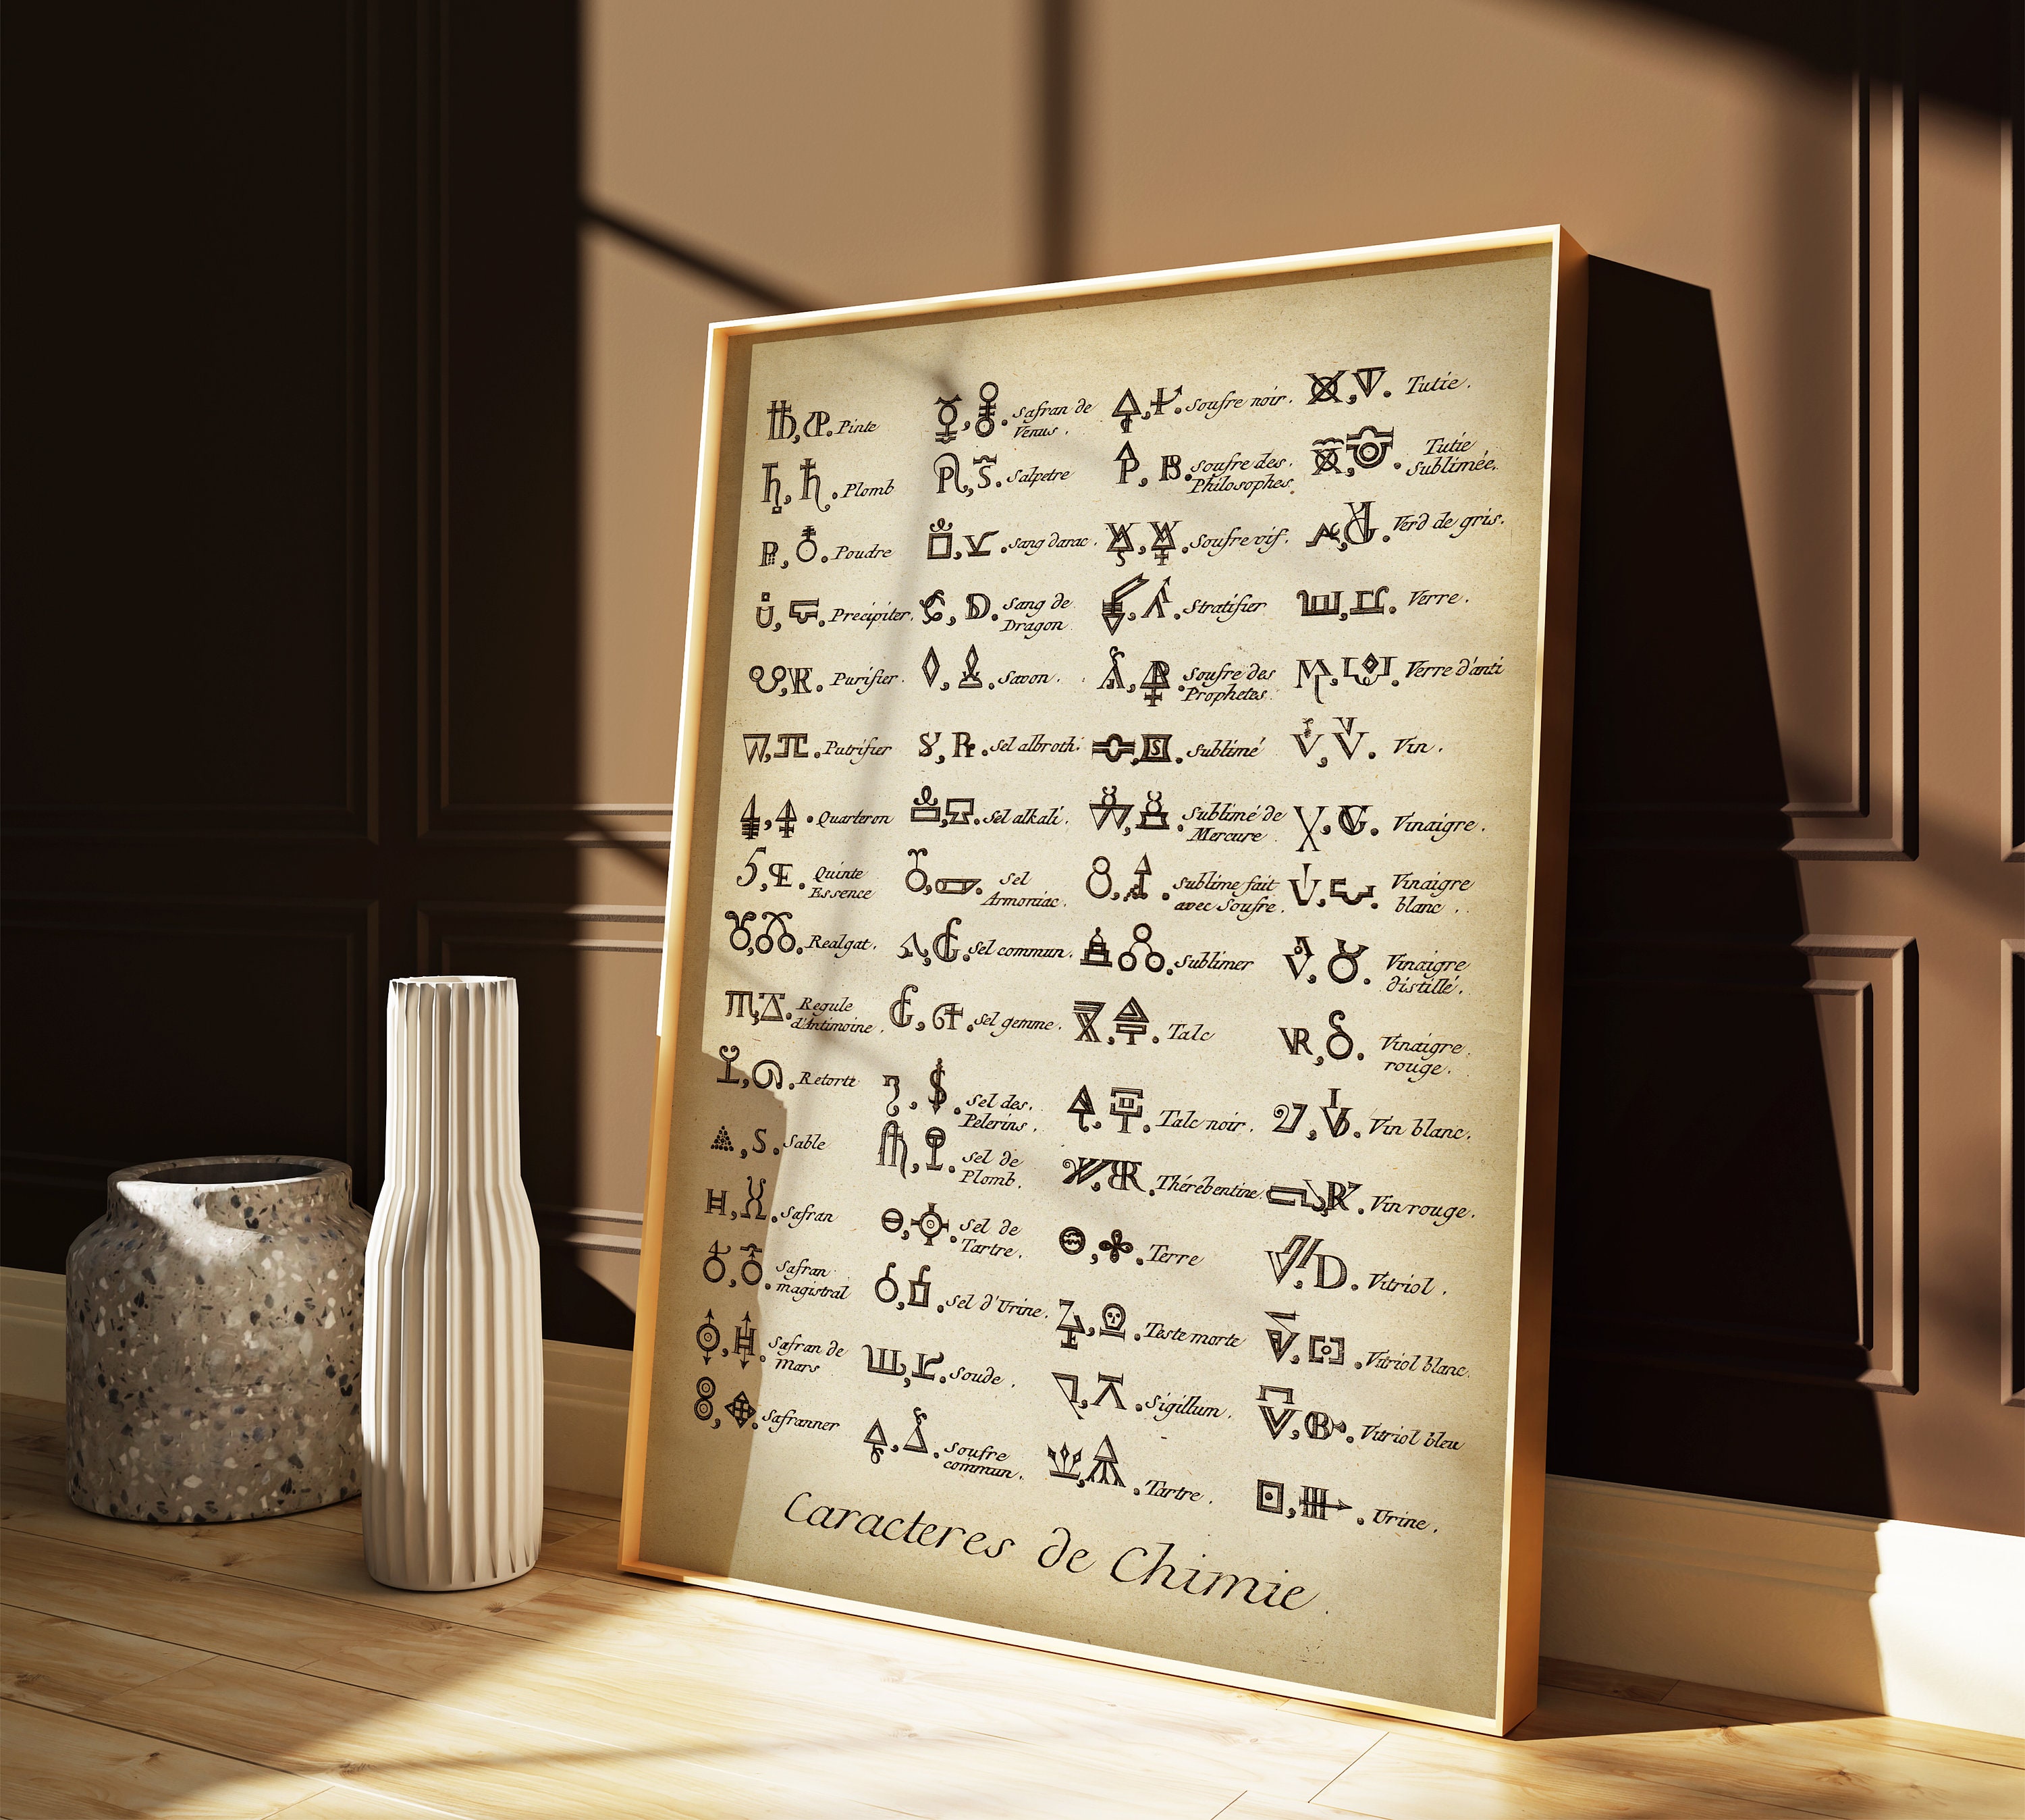 Pinte
Plomb
Poudre
Precipiter.
Purifier.
Putrifier
Quarteron
Quinte
Essence
Realgat.
Regule
d'Antimoine.
Retorte
Sable
Safran
Safran
magistral
Safran de
Mars
Safranner
Safran de
Venus.
Salpetre
Sang darac.
Sang de
Dragon
Savon.
Sel albroth.
Sel alkali.
Sel
Armoniac.
Sel commun.
Sel gemme.
Sel des
Pelerins.
Sel de
Plomb.
Sel de
Tartre.
Sel d'Urine.
Soude.
Soufre
commun.
Soufre noir.
Soufre des
Philosophes.
Soufre vif.
Stratifier
Soufre des
Prophetes.
Sublimé
Sublimé de
Mercure
Sublime fait
avec Soufre.
Sublimer
Talc
Talc noir.
Thérébentine.
Terre
Teste morte
Sigillum.
Tartre.
Tutie.
Tutie
Sublimée.
Verd de gris.
Verre.
Verre d'anti
Vin.
Vinaigre.
Vinaigre
blanc.
Vinaigre
distillé.
Vinaigre
rouge.
Vin blanc.
Vin rouge.
Vitriol.
Vitriol blanc.
Vitriol bleu
Urine.
Caracteres de Chimie.